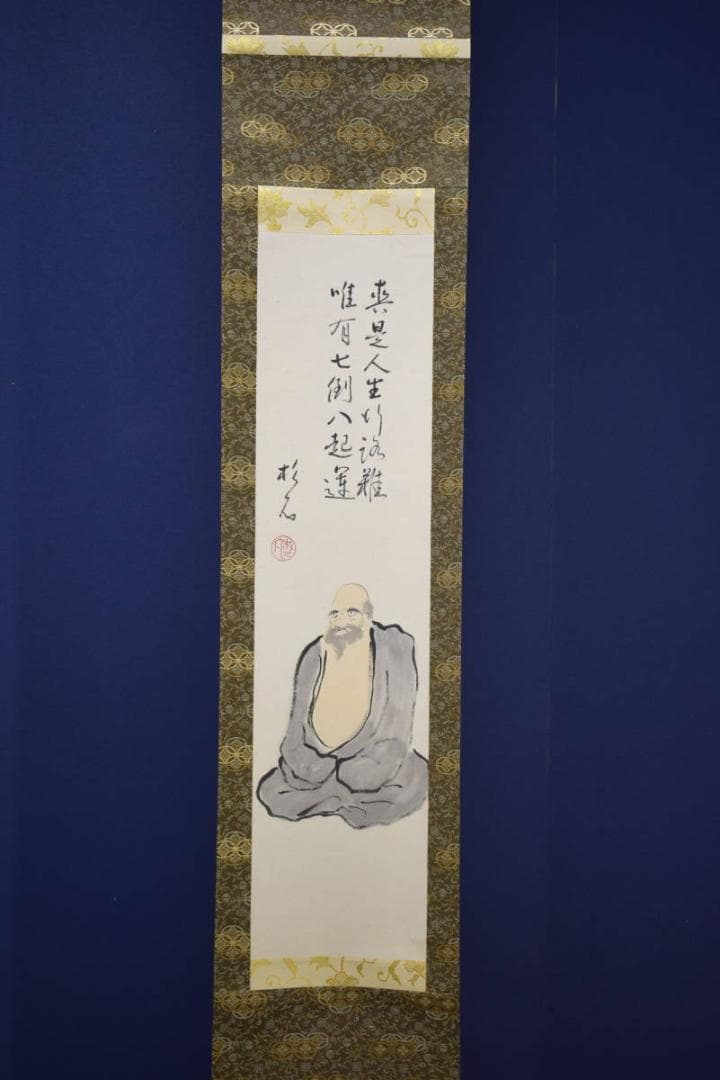 真是人生行路難
唯有七倒八起運
杉石